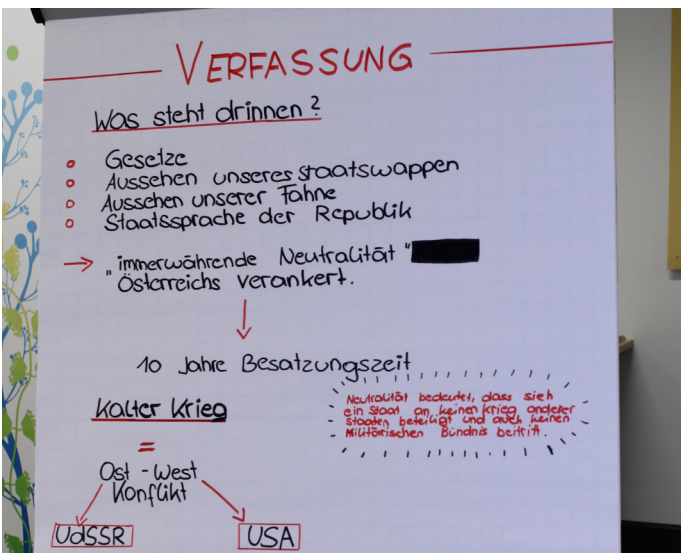 VERFASSUNG
Was steht drinnen?
Gesetze
Aussehen unseres Staatswappen
Aussehen unserer Fahne
Staatssprache der Republik
→ "immerwährende Neutralität"
Österreichs verankert.
10 Jahre Besatzungszeit
Kalter Krieg
Neutralität bedeutet, dass sich
ein Staat an keinen Krieg anderer
Staaten beteiligt und auch keinen
Militärischen Bündnis beitritt.
=
Ost - West
Konflikt
UdSSR USA